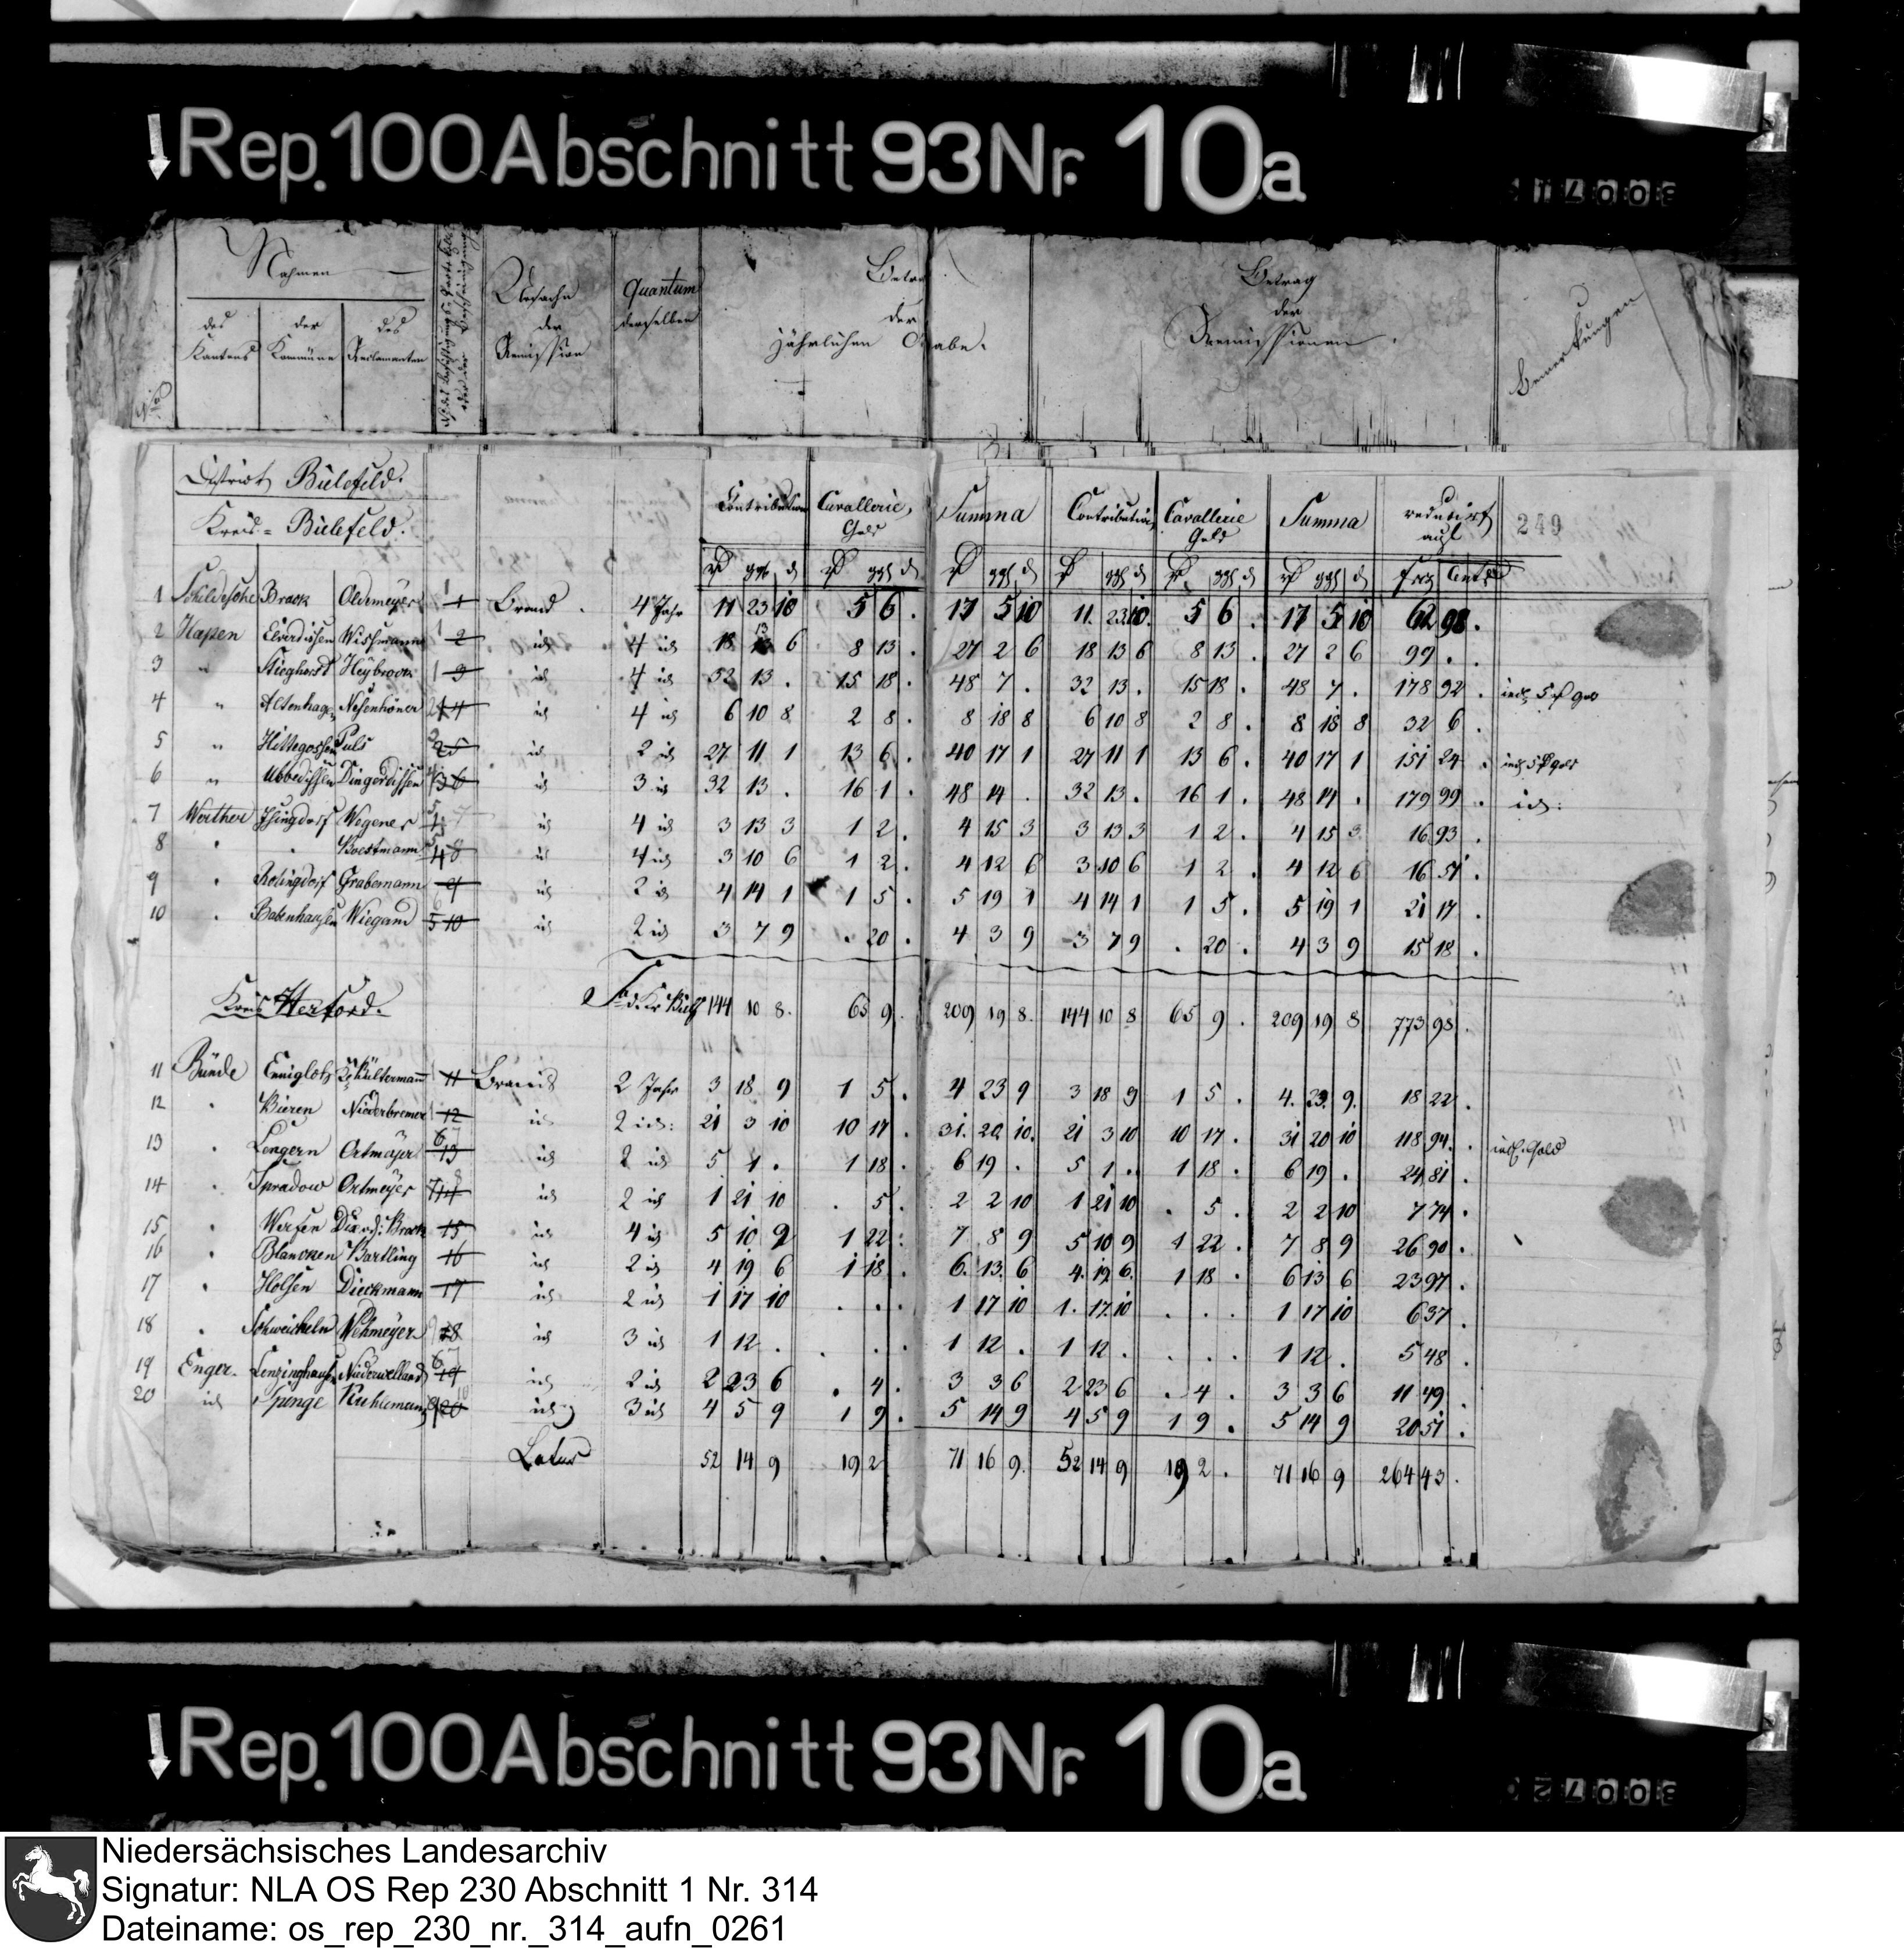 Rep. 100 Abschnitt 93 Nr. 10a
Nahmen
des Kantons
der Kommüne
des Reclamanten
Ursache der Remission
Quantum derselben
der jährlichen
Betrag der Remissionen.
Bemerkungen
District Bielefeld.
Kreis = Bielefeld.
Contribution Cavallerie Geld Summa Contribution Cavallerie Geld Summa reducirt auf 249
1 Schildesche Brack Oldemeyer 1 Brand. 4 Jahr 11 23 10 5 6 . 17 5 10 11. 23 10. 5 6 . 17 5 10 62 98.
2 Hepen Elverdissen Wissmann 2 id 4 id 18 13 6 8 13 . 27 2 6 18 13 6 8 13 . 27 2 6 99 . .
3 " Stieghorst Heybrock 3 id 4 id 32 13 . 15 18 . 48 7 . 32 13 . 15 18 . 48 7 . 178 92 .
4 " Altenhagen Nesenhöner 4 id 4 id 6 10 8 2 8 . 8 18 8 6 10 8 2 8 . 8 18 8 32 6 .
5 " Hillegossen Puls 5 id 2 id 27 11 1 13 6 . 40 17 1 27 11 1 13 6 . 40 17 1 151 24 .
6 " Ubbedissen Dingerdissen 6 id 3 id 32 13 . 16 1 . 48 14 . 32 13 . 16 1 . 48 14 . 179 99 . id:
7 Werther Isingdorf Wegener 7 id 4 id 3 13 3 1 2 . 4 15 3 3 13 3 1 2 . 4 15 3 16 93 .
8 " " 8 id 4 id 3 10 6 1 2 . 4 12 6 3 10 6 1 2 . 4 12 6 16 51 .
9 " Rotingdorf Grabemann 9 id 2 id 4 14 1 1 5 . 5 19 1 4 14 1 1 5 . 5 19 1 21 17 .
10 " Babenhausen Wiegand 10 id 2 id 3 7 9 . 20 . 4 3 9 3 7 9 . 20 . 4 3 9 15 18 .
144 10 8. 65 9 . 209 19 8. 144 10 8 65 9 . 209 19 8 773 98 .
Kreis Herford.
11 Bünde Ennigloh 11 Brand 2 Jahr 3 18 9 1 5 . 4 23 9 3 18 9 1 5 . 4. 23. 9. 18 22 .
12 " Bieren Niederbremer 12 id 2 id: 21 3 10 10 17 . 31. 20 10. 21 3 10 10 17 . 31 20 10 118 94 .
13 " Lengern Ortmayer 13 id 2 id 5 1 . 1 18 . 6 19 . 5 1 . 1 18 . 6 19 . 24 81 .
14 " Spradow Ortmeyer 14 id 2 id 1 21 10 . 5 . 2 2 10 1 21 10 . 5 . 2 2 10 7 74 .
15 " Werfen 15 id 4 id 5 10 9 1 22 . 7 8 9 5 10 9 1 22 . 7 8 9 26 90 .
16 " Blancken Bartling 16 id 2 id 4 19 6 1 18 . 6. 13. 6 4. 19 6. 1 18 . 6 13 6 23 97 .
17 " Holsen Dieckmann 17 id 2 id 1 17 10 . . . 1 17 10 1. 17. 10 . . . 1 17 10 6 37 .
18 " Schweicheln Wehmeyer 18 id 3 id 1 12 . . . . 1 12 . 1 12 . . . . 1 12 . 5 48 .
19 Enger. Lenzinghausen Niederwelland 19 id 2 id 2 23 6 . 4 . 3 3 6 2 23 6 . 4 . 3 3 6 11 49 .
20 id Spenge Kuhlmann 20 id 3 id 4 5 9 1 9 . 5 14 9 4 5 9 1 9 . 5 14 9 20 51 .
Latus 52 14 9 19 2 71 16 9. 52 14 9 19 2 . 71 16 9 264 43 .
Rep. 100 Abschnitt 93 Nr. 10a
Niedersächsisches Landesarchiv
Signatur: NLA OS Rep 230 Abschnitt 1 Nr. 314
Dateiname: os_rep_230_nr._314_aufn_0261